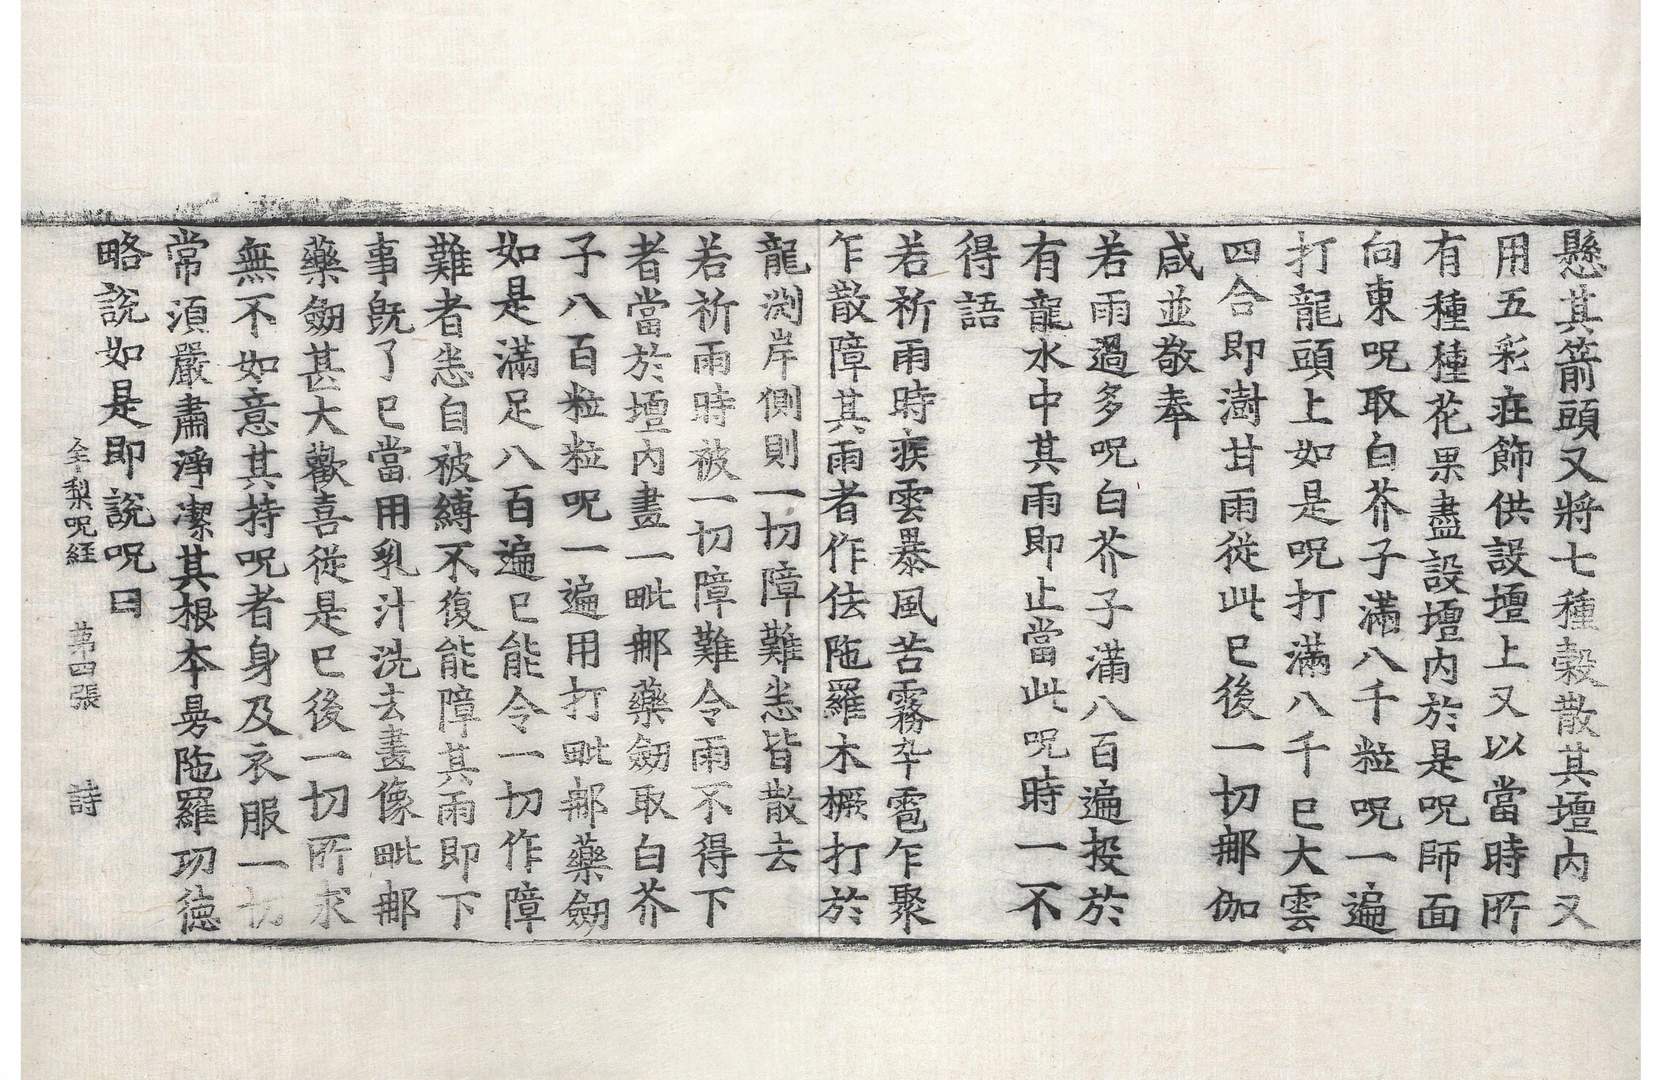 懸其箭頭又將七種穀散其壇内又
用五彩㽵飾供設壇上又以當時所
有種種花果盡設壇内於是呪師面
向東呪取白芥子滿八千粒呪一遍
打龍頭上如是呪打滿八千已大雲
四合即澍甘雨從此已後一切那伽
咸並敬奉
若雨過多呪白芥子滿八百遍投於
有龍水中其雨即止當此呪時一不
得語
若祈雨時疾雲暴風苦霧卒雹乍聚
乍散障其雨者作佉陁羅木橛打於
龍渕岸側則一切障難悉皆散去
若祈雨時被一切障難令雨不得下
者當於壇内畫一毗那藥劒取白芥
子八百粒粒呪一遍用打毗那藥劒
如是滿足八百遍已能令一切作障
難者悉自被縛不復能障其雨即下
事旣了已當用乳汁洗去畫像毗那
藥劒甚大歡喜從是已後一切所求
無不如意其持呪者身及衣服一切
常湏嚴肅淨潔其根本㫷陁羅功德
略說如是即說呪曰
全梨呪経 第四張 詩